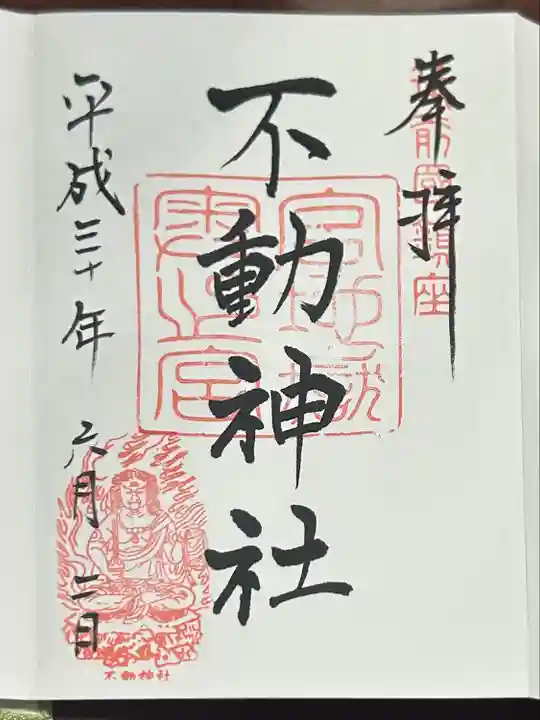 奉拝
不動神社
平成三十年 六月 二日
不動神社